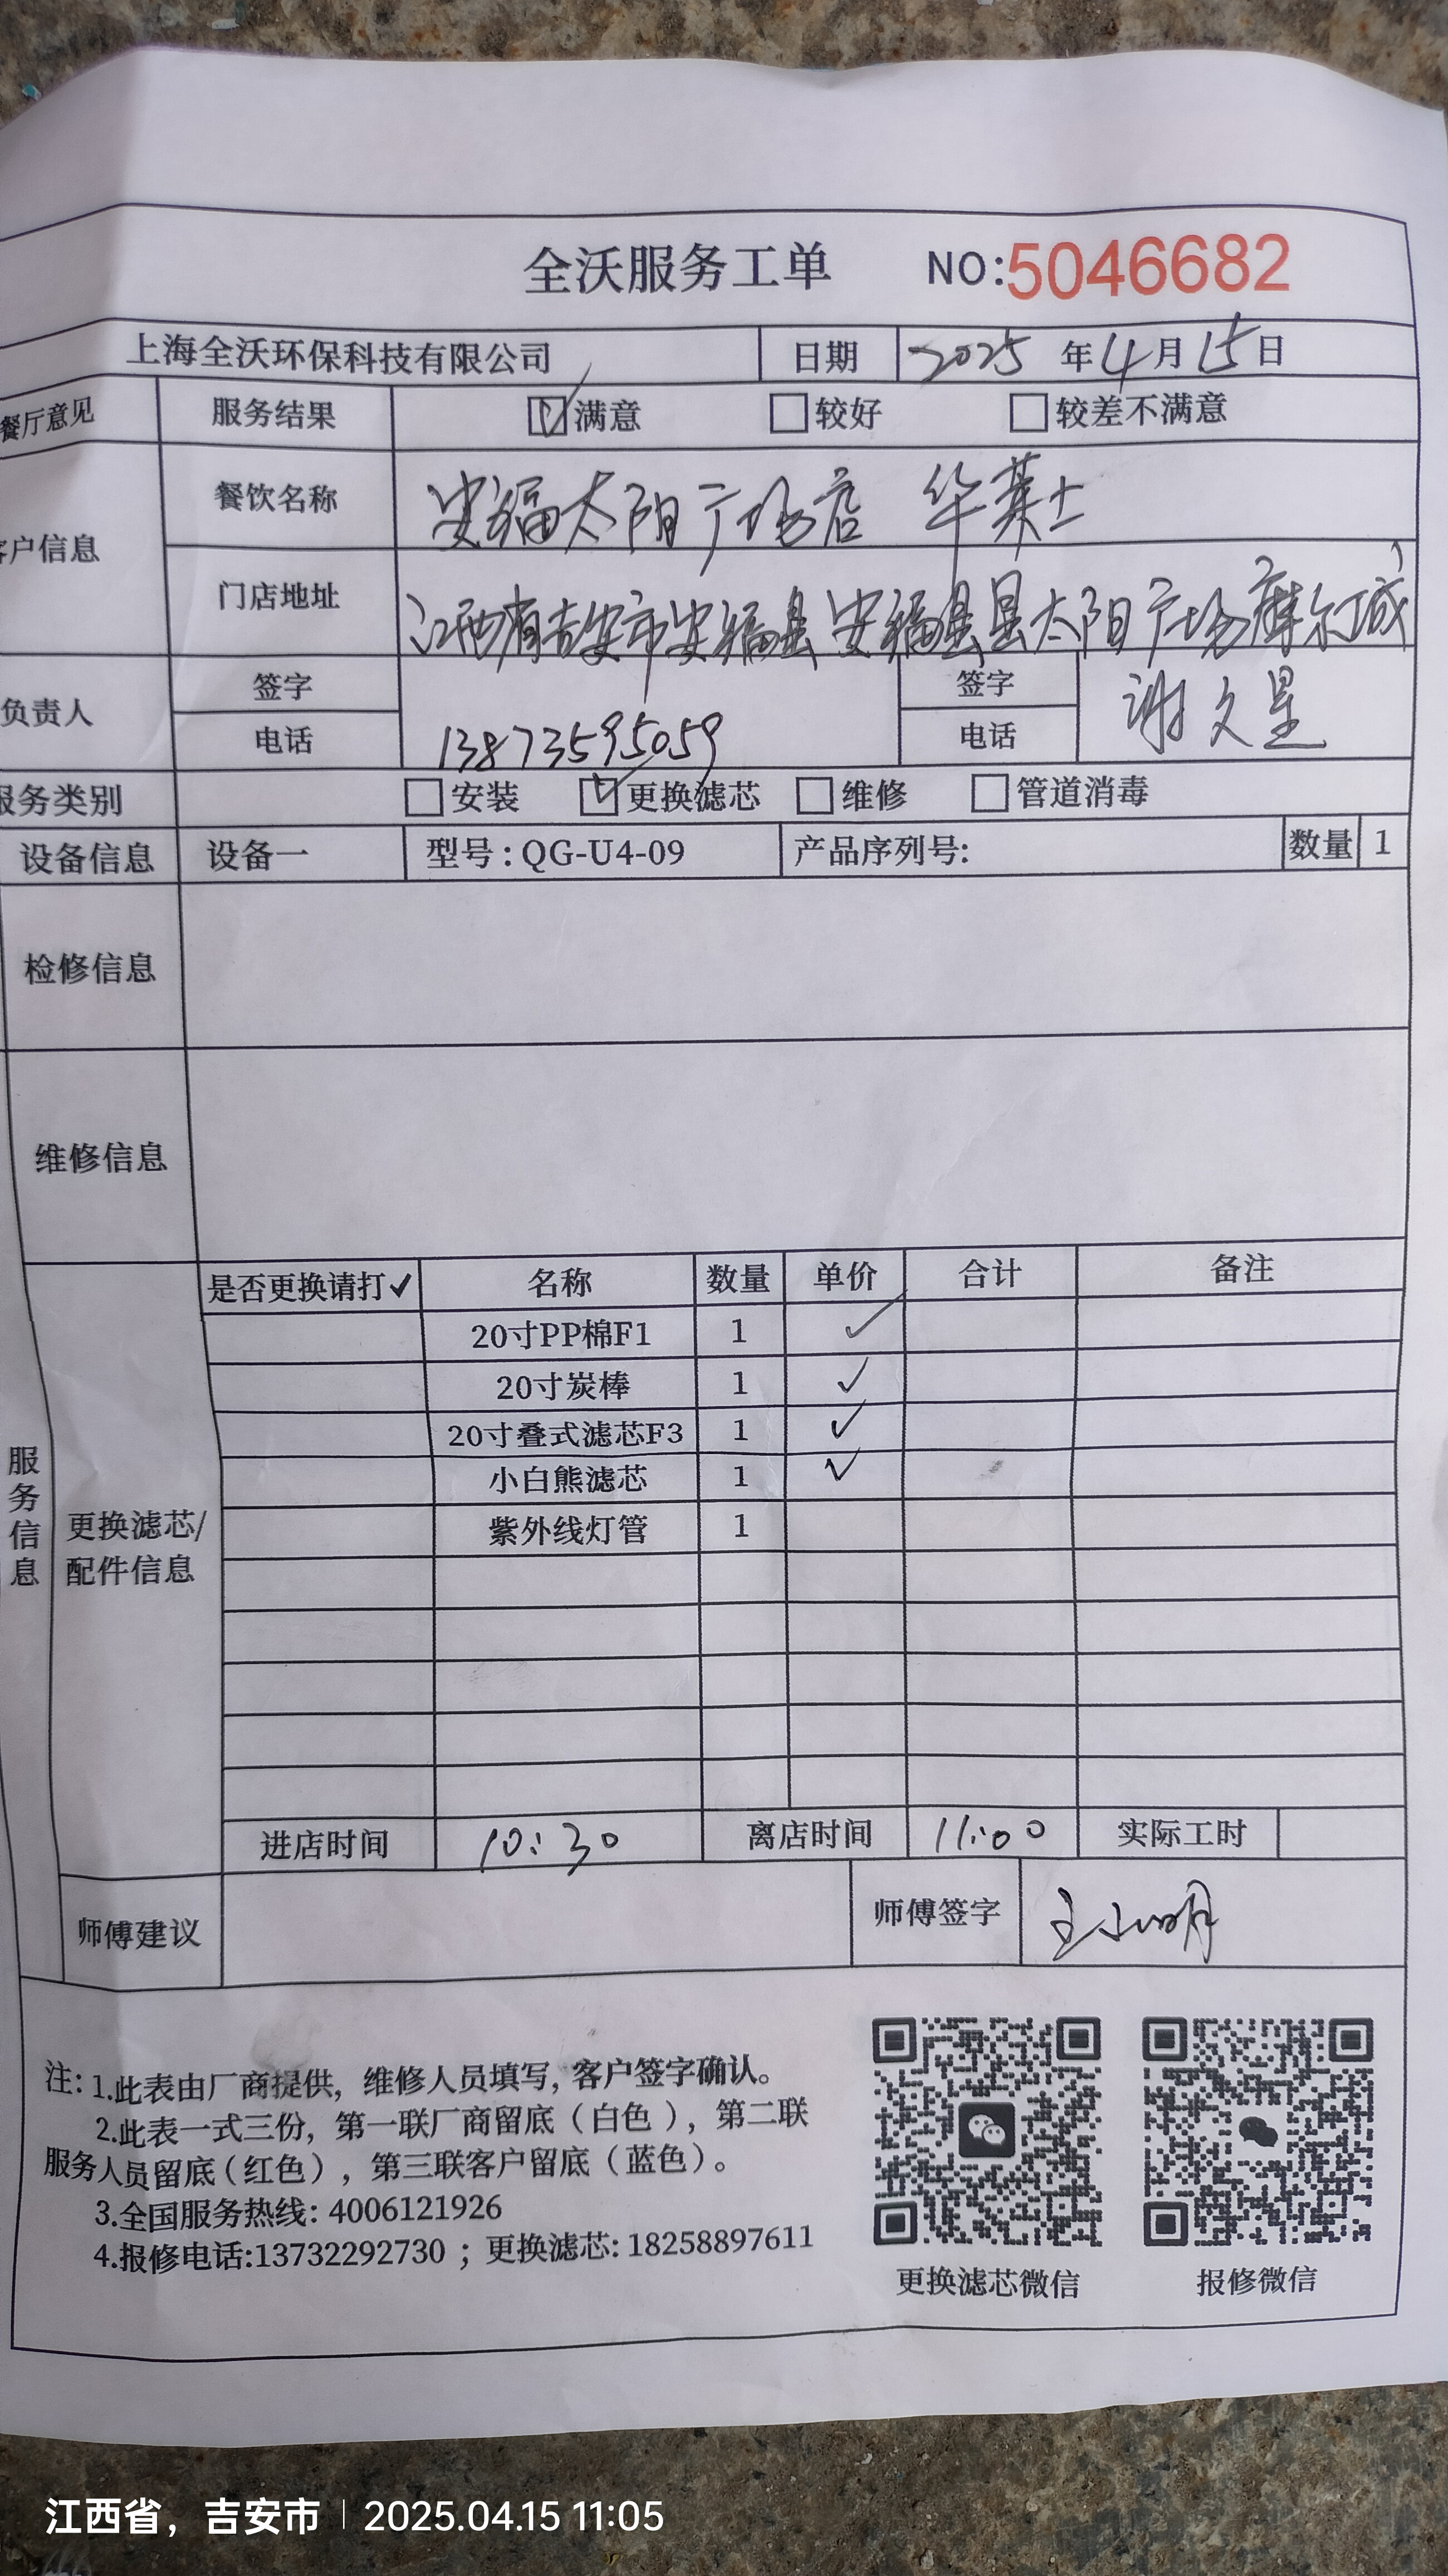 全沃服务工单 NO:5046682
上海全沃环保科技有限公司 日期 2025年4月15日
餐厅意见 服务结果 ☑满意 □较好 □较差不满意
客户信息 餐饮名称 安福太阳广场店 华莱士
门店地址 江西省吉安市安福县安福县县太阳广场摩尔城
负责人 签字 签字 谢文星
电话 13873595059 电话
服务类别 □安装 ☑更换滤芯 □维修 □管道消毒
设备信息 设备一 型号:QG-U4-09 产品序列号: 数量 1
检修信息
维修信息
服务信息
更换滤芯/
配件信息
是否更换请打✓ 名称 数量 单价 合计 备注
20寸PP棉F1 1 ✓
20寸炭棒 1 ✓
20寸叠式滤芯F3 1 ✓
小白熊滤芯 1 ✓
紫外线灯管 1
进店时间 10:30 离店时间 11:00 实际工时
师傅建议 师傅签字 王小明
注:1.此表由厂商提供,维修人员填写,客户签字确认。
2.此表一式三份,第一联厂商留底(白色),第二联
服务人员留底(红色),第三联客户留底(蓝色)。
3.全国服务热线:4006121926
4.报修电话:13732292730;更换滤芯:18258897611
更换滤芯微信 报修微信
江西省，吉安市 2025.04.15 11:05